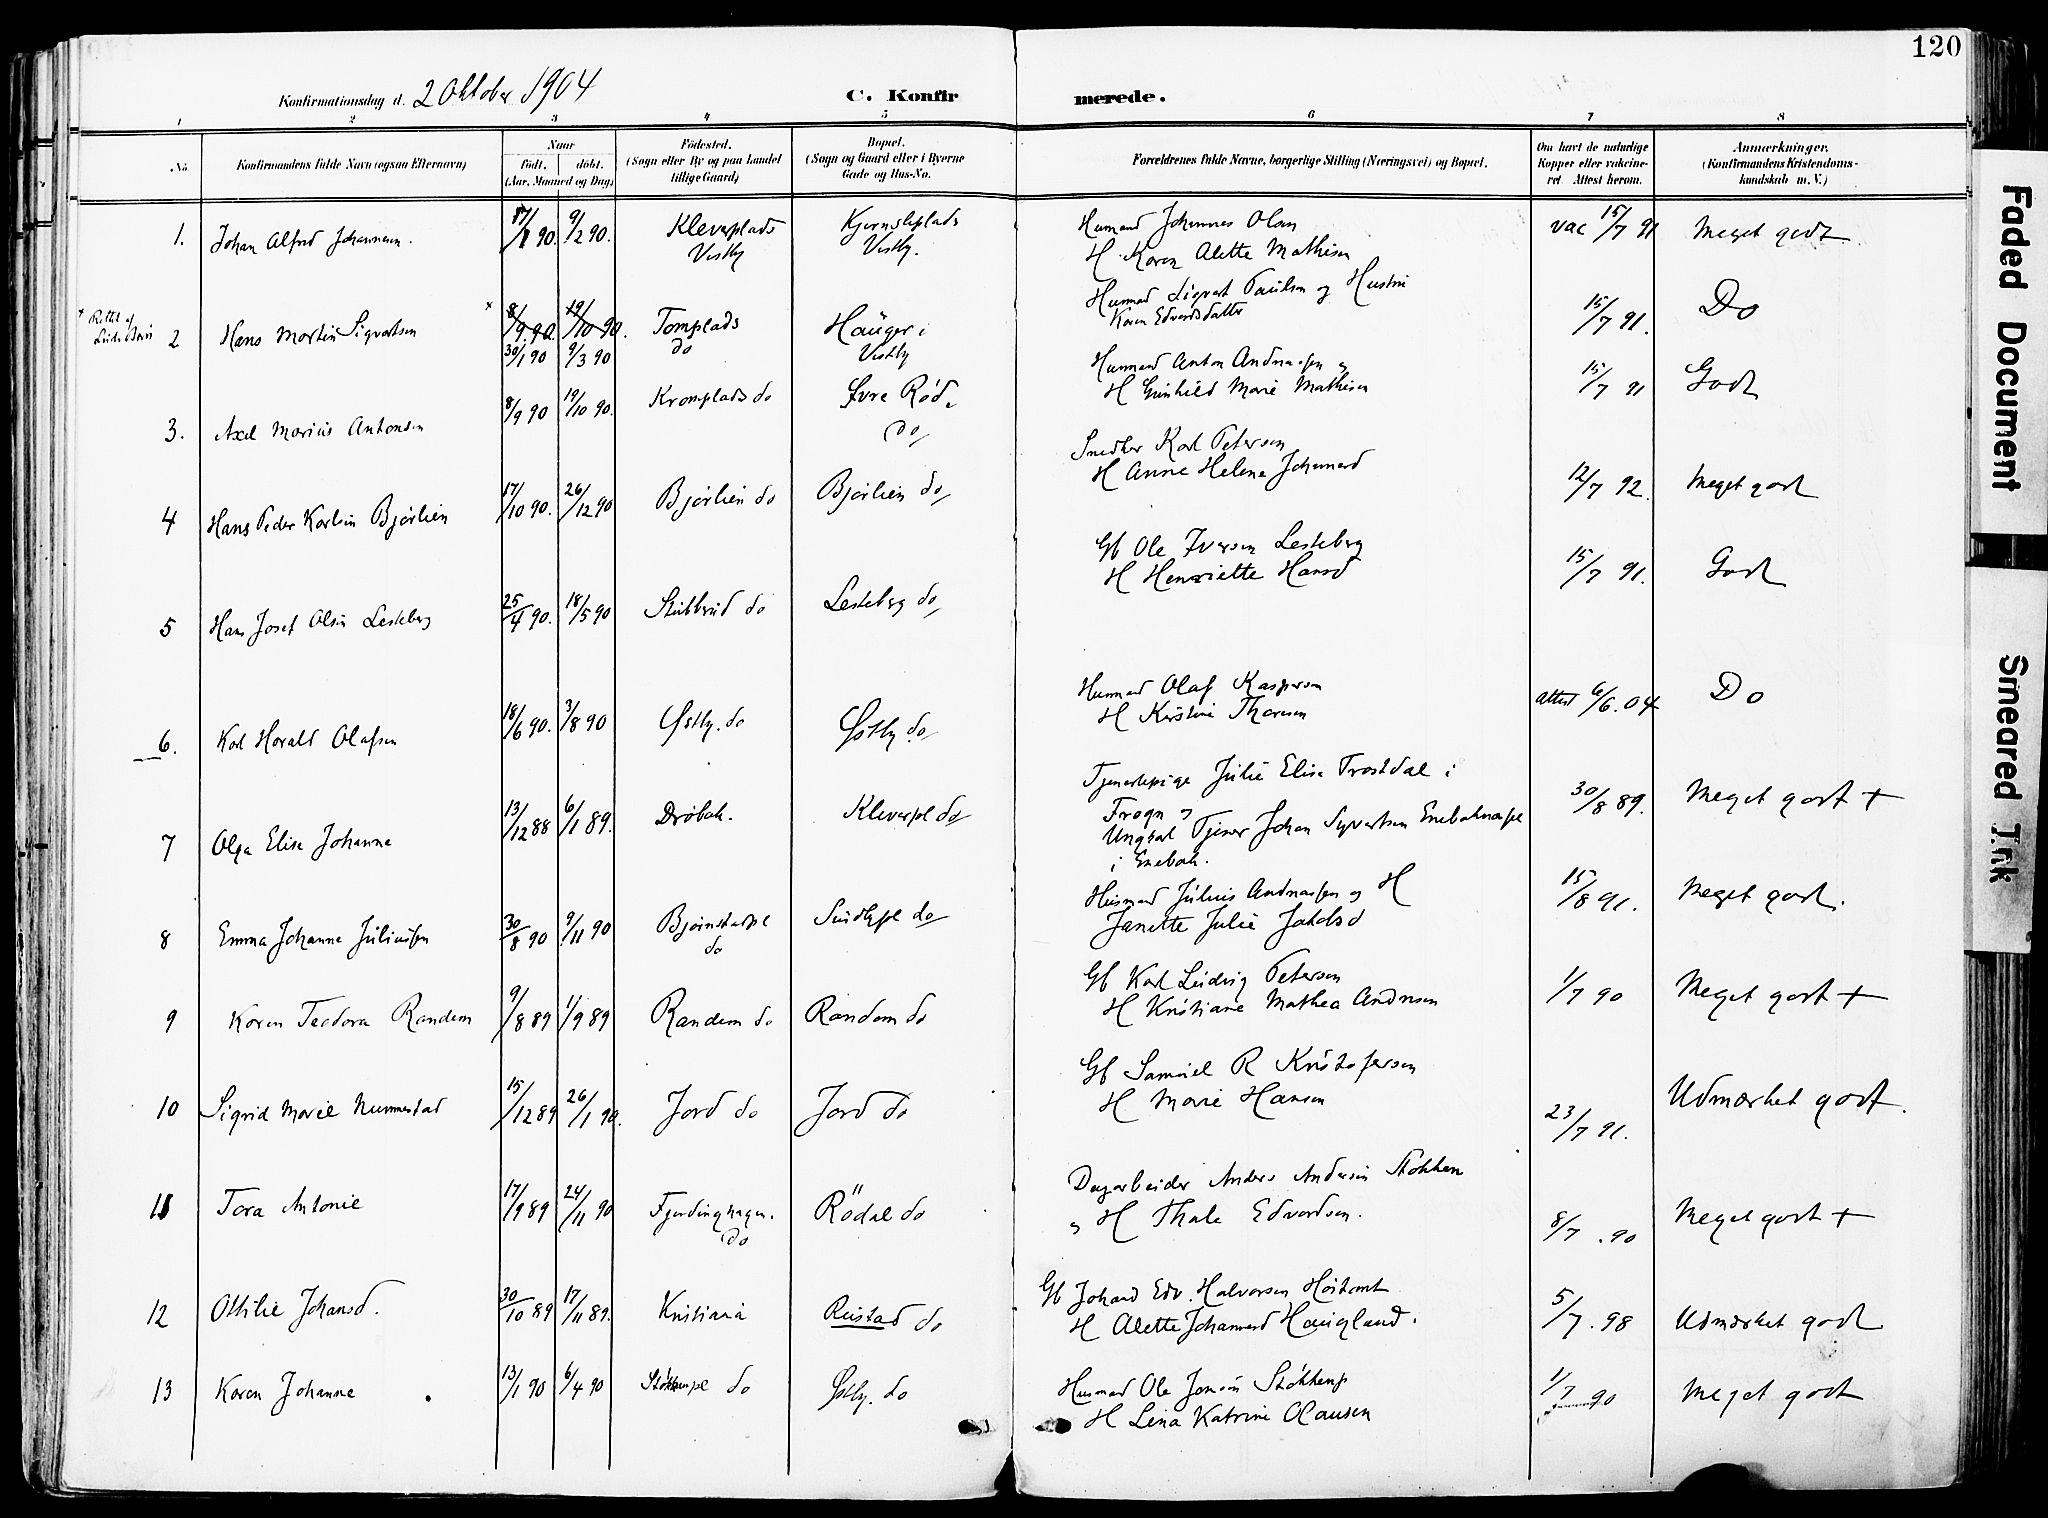 120
Konfirmationsdag d. 2 Oktober 1904
C. Konfirmerede.
1 2 3 4 5 6 7 8
No.
Konfirmandens fulde Navn (ogsaa Efternavn)
Naar
født. døbt.
(Aar, Maaned og Dag)
Fødested.
(Sogn eller By og paa Landet
tillige Gaard)
Bopæl.
(Sogn og Gaard eller i Byerne
Gade og Hus-No.
Forældrenes fulde Navne, borgerlige Stilling (Næringsvei) og Bopæl.
Om havt de naturlige
Kopper eller vakcine-
ret. Attest herom.
Anmærkninger.
(Konfirmandens Kristendoms-
kundskab m. V.)
1. Johan Alfred Johannesen. 90. 9/2 90. Kleverplads Vestby Vestby.
Husmand Johannes Olsen
H. Karen Alette Mathisen
vac 15/7 91 Meget godt
2 Hans Martin Sigvartsen 8/9 90. 19/10 90. 30/1 90 9/3 90 Tomplads do Hauger i Vestby
Husmand Sigvart Paulsen og Hustru
Karen Edvardsdatter
15/7 91. Do
3. Axel Marius Antonsen 8/9 90 19/10 90. Kromplads do Øvre Rød. do
Husmand Anton Andreassen og
H Gunhild Marie Mathisen
15/7 91 Godt
4 Hans Peder Karlsen Bjørlien 17/10 90. 26/12 90 Bjørlien do Bjørlien do
Snedker Karl Petersen
H Anne Helene Johannesd
12/7 92. Meget godt
5 Hans Josef Olsen Lesteberg 25/4 90. 18/5 90 Stubberud do Lesteberg do
Gb Ole Iversen Lesteberg
H Henriette Hansd
15/7 91. Godt
6. Karl Harald Olafsen 18/6 90. 3/8 90 Østby. do Østby do
Husmand Olaf Kaspersen
H Kirstine Thoresen
attest 6/6.04 Do
7 Olga Elise Johanne 13/12 88 6/1 89. Drøbak. Kleverpl do
Tjenestepige Julie Elise Trostdal i
Frogn og
Ungkarl Tjener Johan Syvertsen Enebaknespl
i Enebak.
30/8 89. Meget godt +
8 Emma Johanne Juliussen 30/8 90 9/11 90 Bjørnstadpl do Sundbypl do
Husmand Julius Andreassen og H
Janette Julie Jakobsd
15/8 91. Meget godt.
9 Karen Teodora Randem 9/8 89 1/9 89 Randem do Randem do
Gb Karl Ludvig Petersen
H Kristiane Mathea Andresen
1/7 90 Meget godt +
10 Sigrid Marie Nummestad 15/12 89 26/1 90. Jord do Jord do
Gb Samuel R Kristofersen
H Marie Hansen
23/7 91. Udmærket godt.
11 Tora Antonie 17/9 89 24/11 90 Fjerdinghagen. do Rødal do
Dagarbeider Anders Andersen Støkken
og H Thale Edvardsen.
8/7 .90 Meget godt +
12 Ottilie Johansd. 30/10 89 17/11 89. Kristiania Rustad do
Gb Johan Edv. Halvorsen Høitomt
H Alette Johannesd Haugland.
5/7.98 Udmærket godt
13 Karen Johanne 13/1 90 6/4 90 Støkkenpl do Østby. do
Husmand Ole Jensen Støkkenp
H Lina Katrine Olausen
1/7 90 Meget godt
Faded Document
Smeared Ink